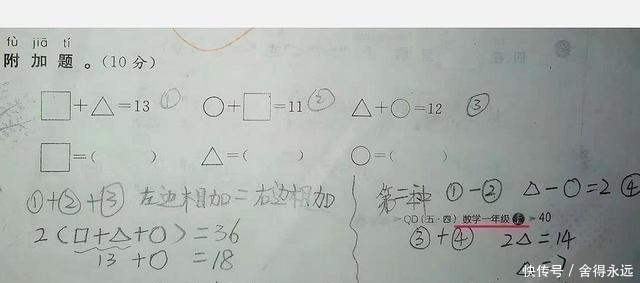 fù jiā tí
附加题。(10分)
□+△=13 ① ○+□=11 ② △+○=12 ③
□=( ) △=( ) ○=( )
①+②+③ 左边相加=右边相加
2(□+△+○)=36
13+○=18
第二种 ①-② △-○=2 ④
QD(五·四) 数学一年级 上 40
③+④ 2△=14
△=7
快传号/舍得永远